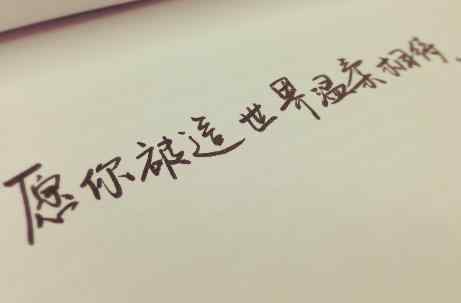 愿你被這世界温柔相待、